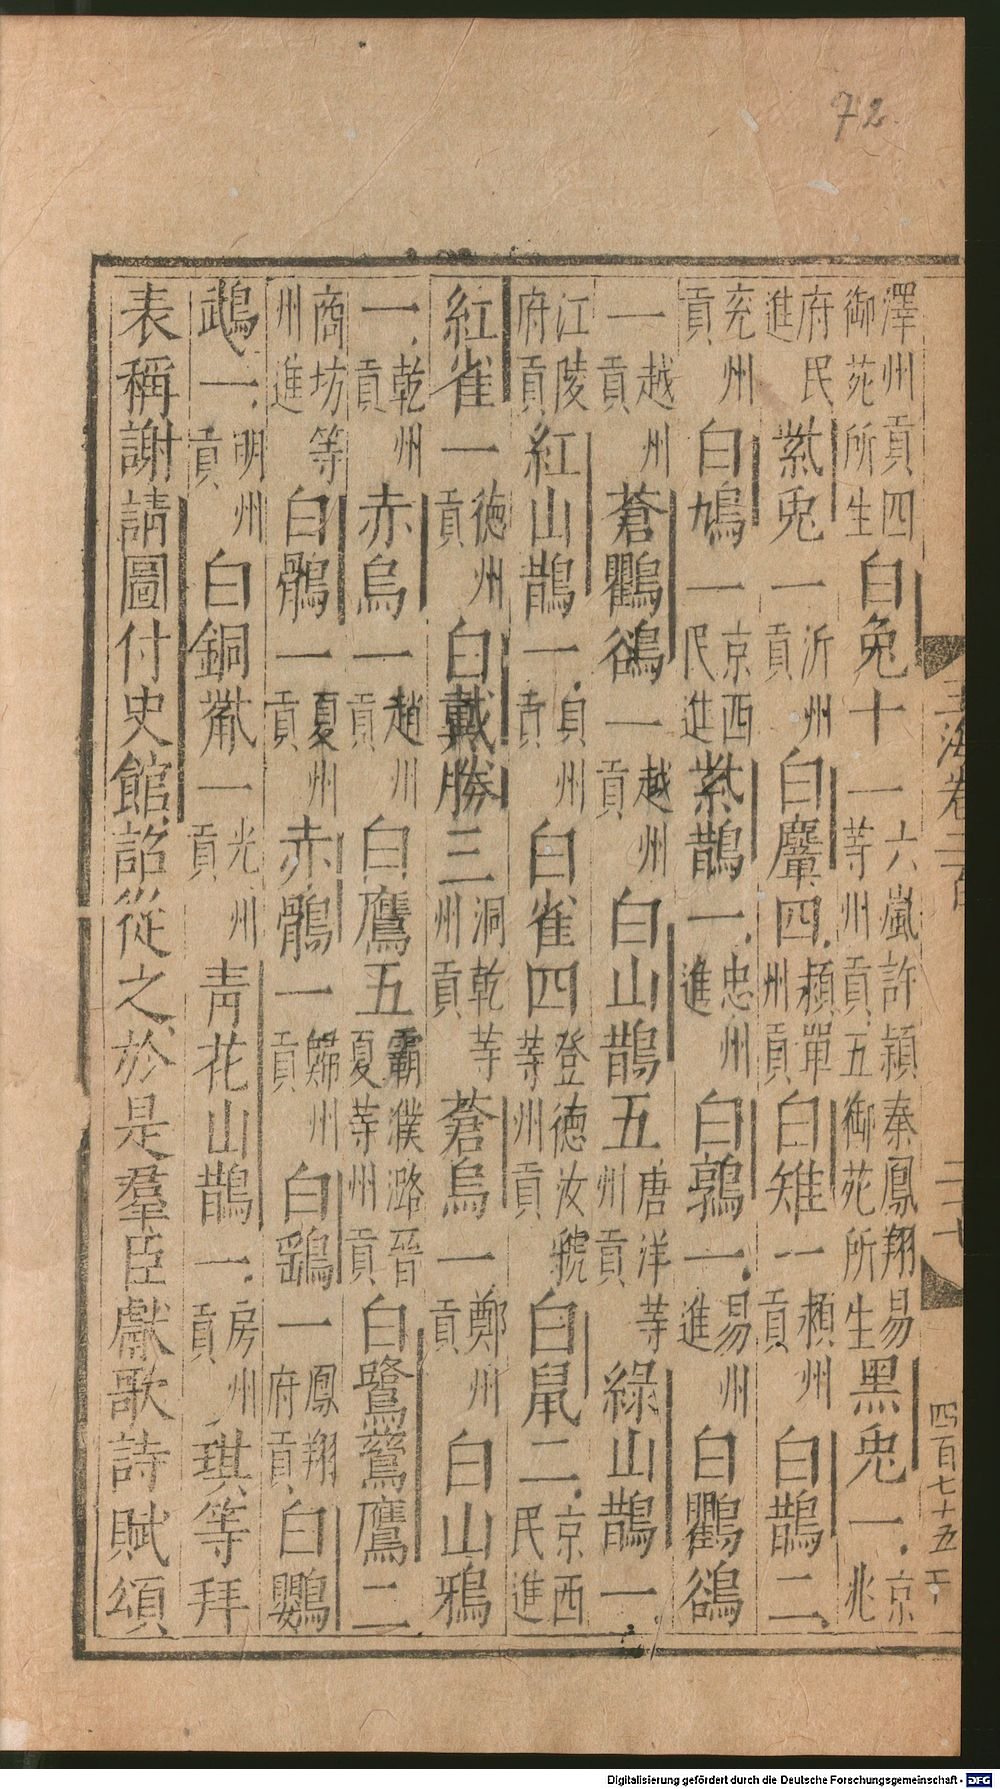 72
澤州貢四御苑所生白兔十一六嵐許潁秦鳳翔易等州貢五御苑所生黑兎一京兆
府民進紫兎一沂州貢白麞四潁單州貢白雉一潁州貢白鵲二
兖州貢白鳩一京西民進紫鵲一忠州進白鶉一易州進白鸜鵒
一越州貢蒼鸜鵒一越州貢白山鵲五唐洋等州貢綠山鵲一
江陵府貢紅山鵲一貝州貢白雀四登德汝虢等州貢白鼠二京西民進
紅雀一德州貢白戴勝三洞乾等州貢蒼烏一鄭州貢白山鴉
一乾州貢赤烏一趙州貢白鷹五霸濮潞晉夏等州貢白鷺鶿鷹二
商坊等州進白鶻一夏州貢赤鶻一歸州貢白鷂一鳳翔府貢白鸚
鵡一明州貢白銅觜一光州貢青花山鵲一房州貢琪等拜
表稱謝請圖付史館詔從之於是羣臣獻歌詩賦頌
玉海卷二百 二十七 四百七十五
Digitalisierung gefördert durch die Deutsche Forschungsgemeinschaft - DFG